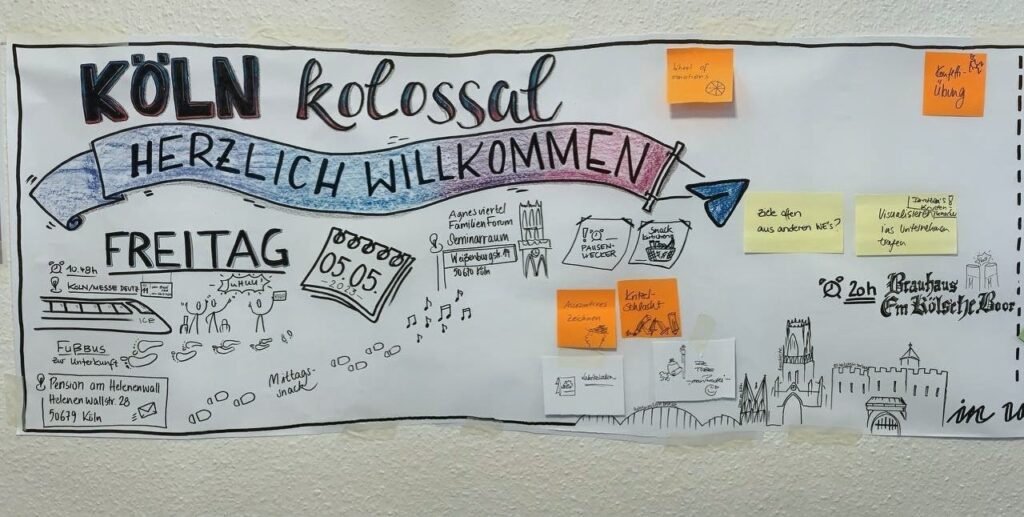 KÖLN kolossal
HERZLICH WILLKOMMEN
FREITAG
05.05.
2023
10.48h
KÖLN/MESSE DEUTZ
ICE
JUHUU!
FUẞBUS
zur Unterkunft
Pension am Helenenwall
Helenenwallstr. 28
50679 Köln
Mittags-
snack
Agnesviertel
FamilienForum
Seminarraum
Weißenburgstr. 14
50670 Köln
PAUSEN-
WECKER
Snack
Wheel of
emotions
Konfetti-
ÜBUNG
Ziele offen
aus anderen WE's?
Visualisieren
ins Unternehmen
tragen
Assoziatives
Zeichnen
Kritzel-
schlacht
20h
Brauhaus
Em Kölsche Boor
in